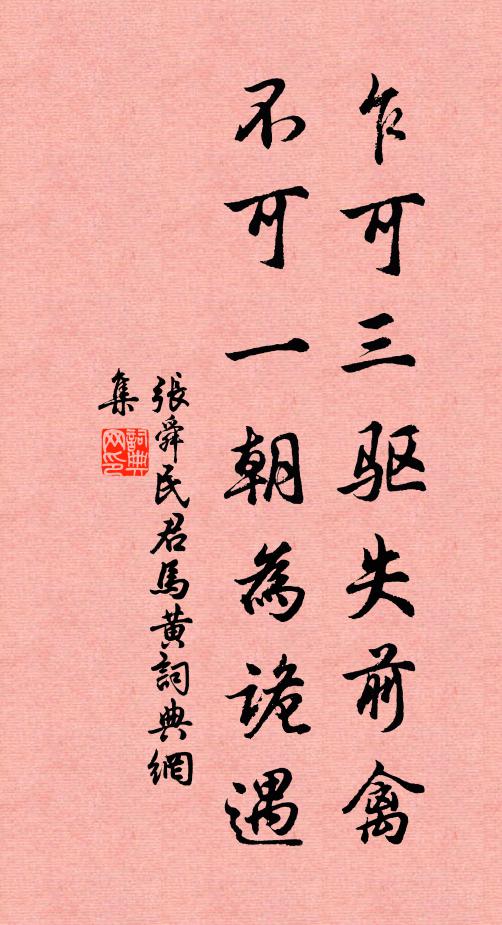 乍可三驱失前禽
不可一朝為詭遇
張舜民君馬黄詞典網
集
詞典
网印